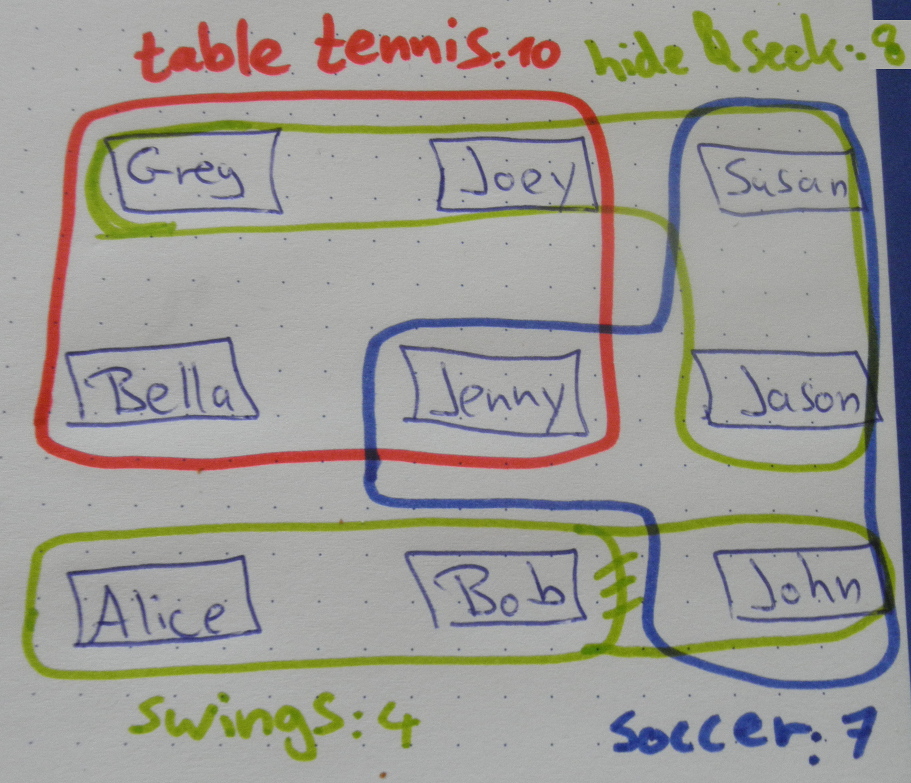 table tennis: 10
hide & seek: 8
Greg
Joey
Susan
Bella
Jenny
Jason
Alice
Bob
John
swings: 4
soccer: 7